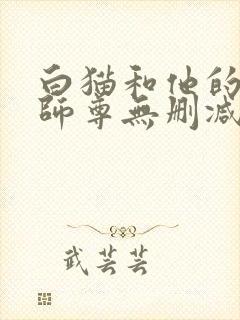 白猫和他的
師尊無删减
武芸芸